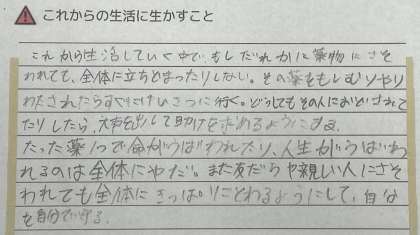 これからの生活に生かすこと
これから生活していく中で、もしだれかに薬物にさそ
われても、全体に立ちどまったりしない。その薬をもしむりやり
わたされたらすぐにけいさつに行く。どうしてもその人におどされて
たりしたら、大声を出して助けを求めるようにする。
たった薬1つで命がうばわれたり、人生がうばわ
れるのは全体にやだ。また友だちや親しい人にさそ
われても全体にきっぱりことわるようにして、自分
を自分で守る。